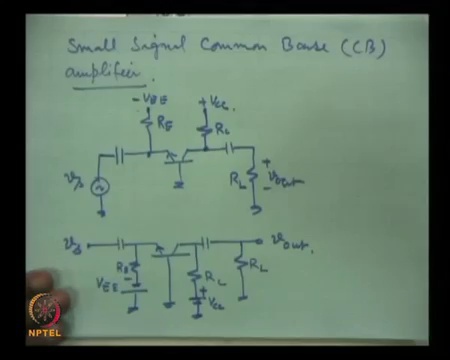 Small Signal Common Base (CB)
amplifier.
- VEE
+ VCC
RE
RL
vs
RL
+
vout
-
vs
vout.
RE
-
VEE
RL
+
VCC
RL
NPTEL